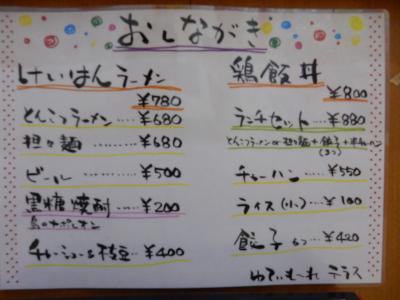 おしながき
けいはんラーメン
¥780
とんこつラーメン……¥680
担々麺……¥680
ビール……¥500
黒糖焼酎……¥200
島のナポレオン
チャーシュー&枝豆…¥400
鶏飯丼
¥800
ランチセット……¥880
とんこつラーメン or 担々麺+餃子+半チャーハン
(3つ)
チャーハン……¥550
ライス(小)…¥100
餃子 6つ…¥420
ゆてぃもーれ テラス